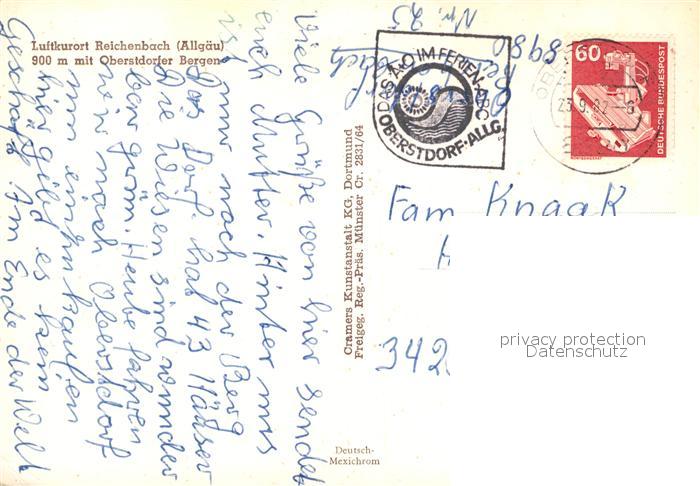 Luftkurort Reichenbach (Allgäu)
900 m mit Oberstdorfer Bergen
Viele Grüße von hier sendet
euch Mutter. Hinter uns
ist nur noch der Berg
Das Dorf hat 43 Häuser
Die Wiesen sind wunder
bar grün. Heute fahren
wir nach Oberstdorf
um einzukaufen
hier gibt es kein
Geschäft. Am Ende der Welt
Cramers Kunstanstalt KG, Dortmund
Freigeg. Reg.-Präs. Münster Cr. 2831/64
8980
Nr. 25
DAS A+O IM FERIEN-ABC
OBERSTDORF-ALLG.
23.9.82
60
DEUTSCHE BUNDESPOST
Fam Knaak
342
privacy protection
Datenschutz
Deutsch-
Mexichrom